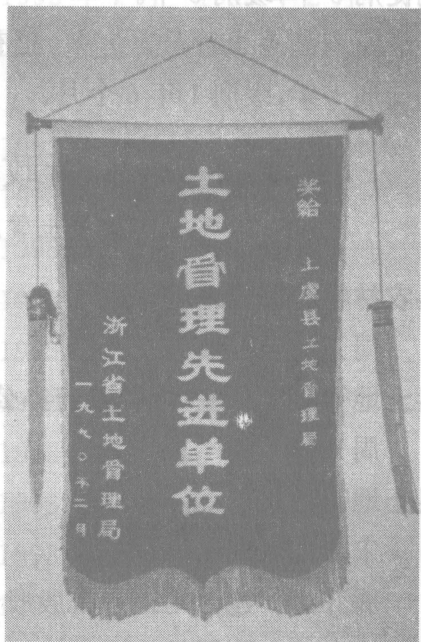 奖给 上虞县土地管理局
土地管理先进单位
浙江省土地管理局
一九九〇年二月